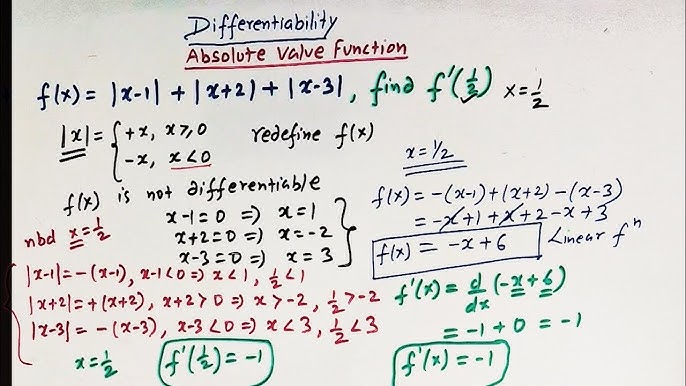 Differentiability
Absolute Value Function
f(x) = |x-1| + |x+2| + |x-3|, find f'(1/2) x=1/2
|x| = { +x, x≥0
-x, x<0
redefine f(x)
f(x) is not differentiable
x-1=0 => x=1
x+2=0 => x=-2
x-3=0 => x=3
nbd x=1/2
|x-1| = -(x-1), x-1<0 => x<1, 1/2<1
|x+2| = +(x+2), x+2>0 => x>-2, 1/2>-2
|x-3| = -(x-3), x-3<0 => x<3, 1/2<3
x=1/2 f'(1/2) = -1
x=1/2
f(x) = -(x-1)+(x+2)-(x-3)
= -x+1+x+2-x+3
f(x) = -x+6 Linear fⁿ
f'(x) = d/dx (-x+6)
= -1+0 = -1
f'(x) = -1